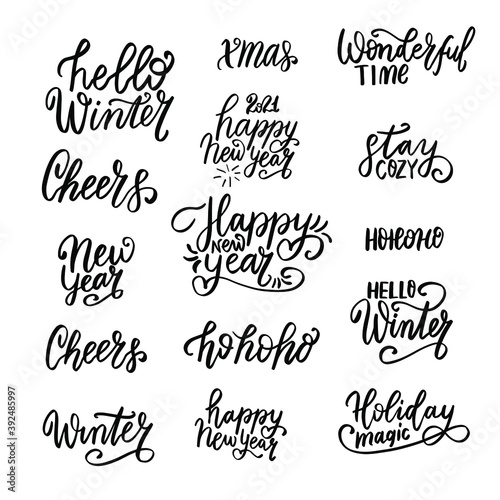 hello
Winter
Cheers
New
Year
Cheers
Winter
xmas
2021
happy
New year
Happy
NEW
year
hohoho
happy
New year
Wonderful
TIME
stay
COZY
HOHOHO
HELLO
Winter
Holiday
magic
Adobe Stock | #392485997